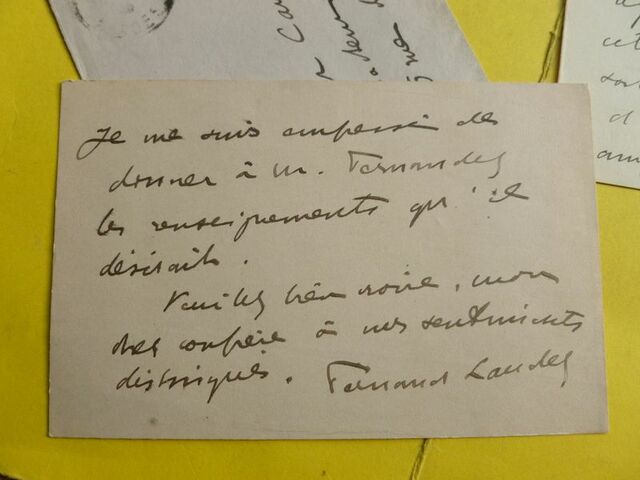 Je me suis empressé de
donner à M. Fernandez
les renseignements qu'il
désirait.
Veuillez bien croire, mon
cher confrère à mes sentiments
distingués. Fernand Laudet